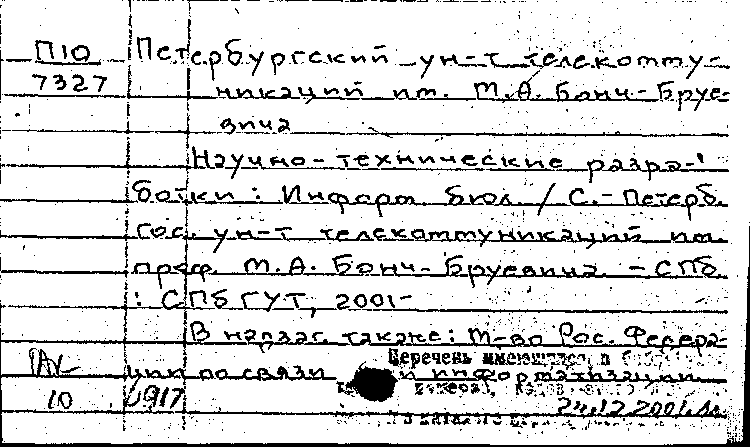 П10
7327
Петербургский ун-т телекомму-
никаций им. М.А. Бонч-Бруе-
вича
Научно-технические разра-
ботки: Информ. бюл. / С.-Петерб.
гос. ун-т телекоммуникаций им.
проф. М.А. Бонч-Бруевича. - СПб.
: СПбГУТ, 2001-
В надзаг. также: М-во Рос. Федера-
Перечень имеющихся в
ции по связи и информатизации
10 24.12.2001